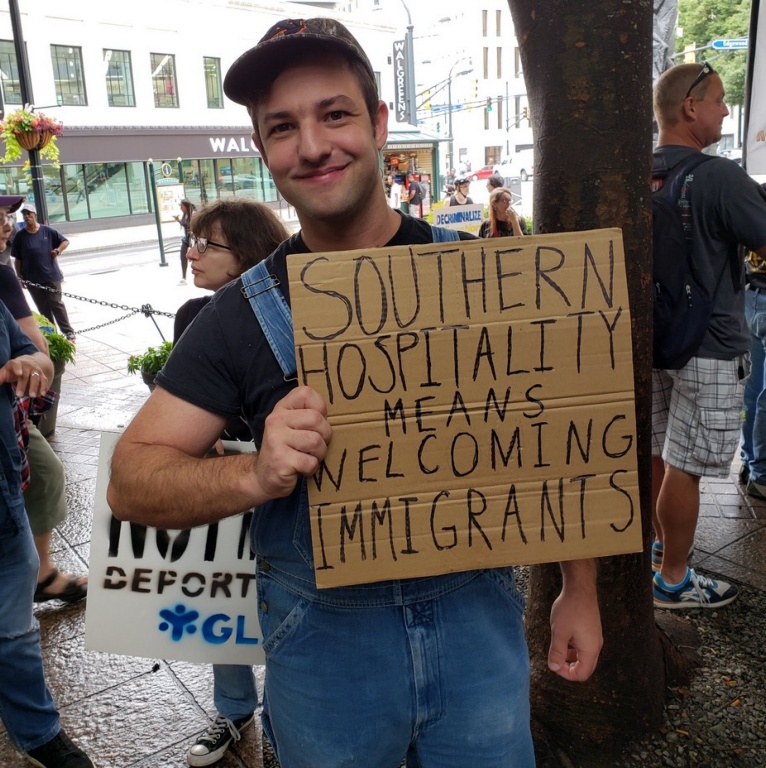 WALGREENS
WALG
DECRIMINALIZE
SOUTHERN
HOSPITALITY
MEANS
WELCOMING
IMMIGRANTS
DEPORT
GL